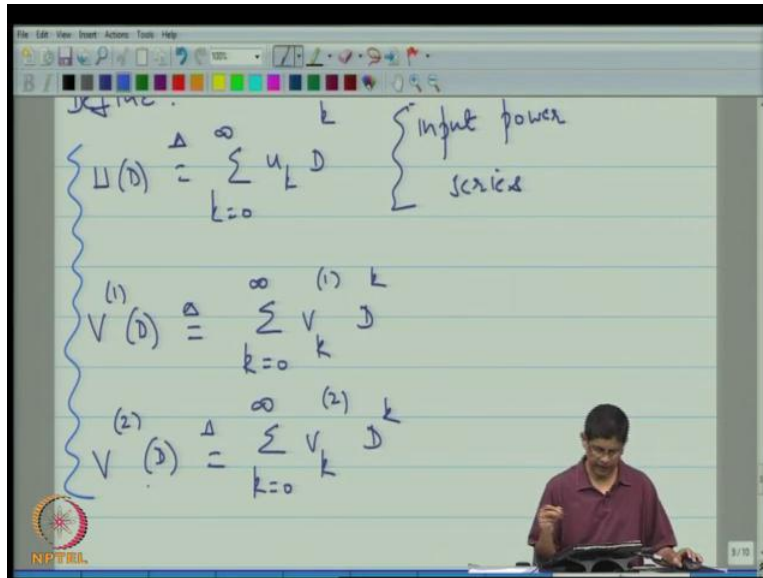 File Edit View Insert Actions Tools Help
Define :
U(D) ≜ ∑_{k=0}^{∞} u_k D^k { input power
series
V^{(1)}(D) ≜ ∑_{k=0}^{∞} V_k^{(1)} D^k
V^{(2)}(D) ≜ ∑_{k=0}^{∞} V_k^{(2)} D^k
NPTEL
9/10